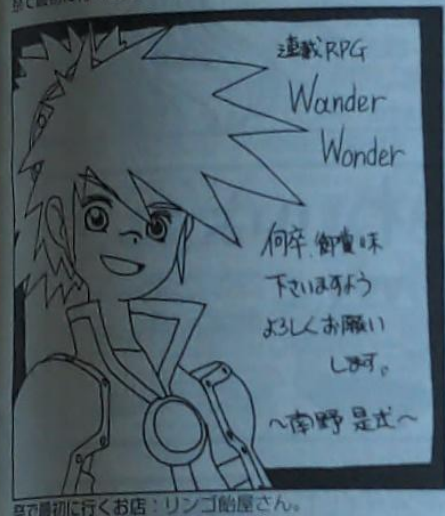 連載RPG
Wander
Wonder
何卒、御賞味
下さいますよう
よろしくお願い
します。
〜南野 是式〜
祭で最初に行くお店：リンゴ飴屋さん。